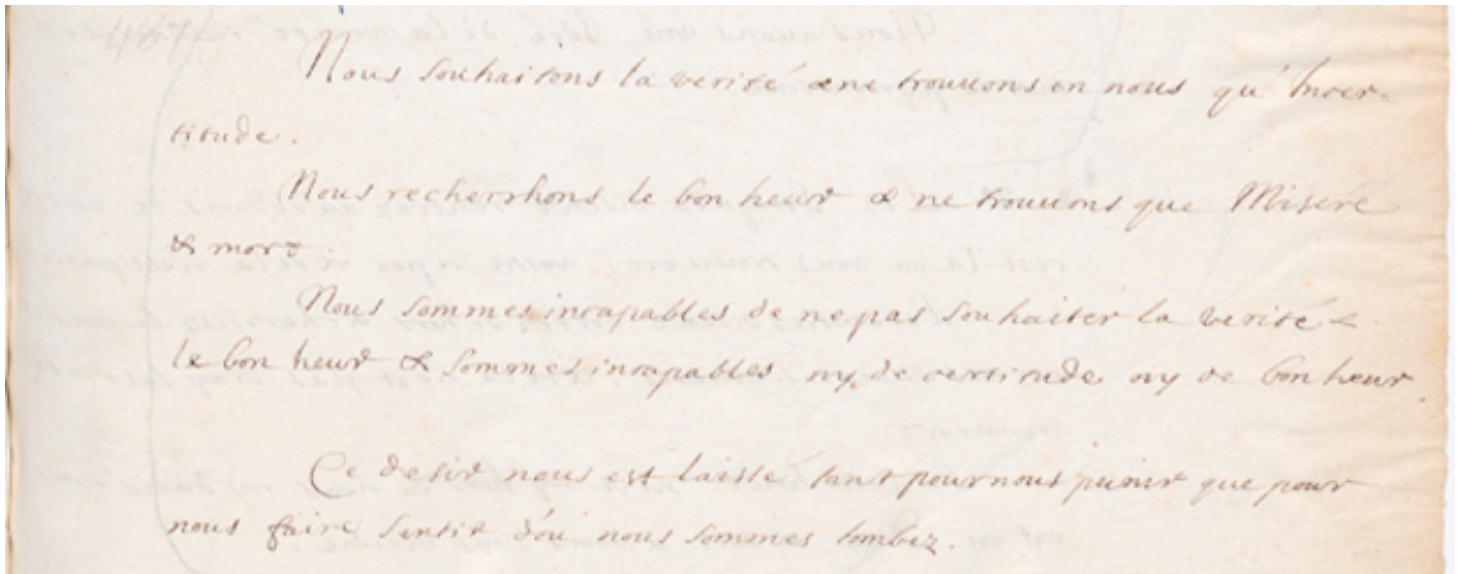 Nous souhaitons la verité & ne trouuons en nous qu'Incer-
titude.
Nous recherchons le bon heur & ne trouuons que Misere
& mort.
Nous sommes incapables de ne pas souhaiter la verité &
le bon heur & sommes incapables ny de certitude ny de bonheur.
Ce desir nous est laissé tant pour nous punir que pour
nous faire sentir d'ou nous sommes tombez.